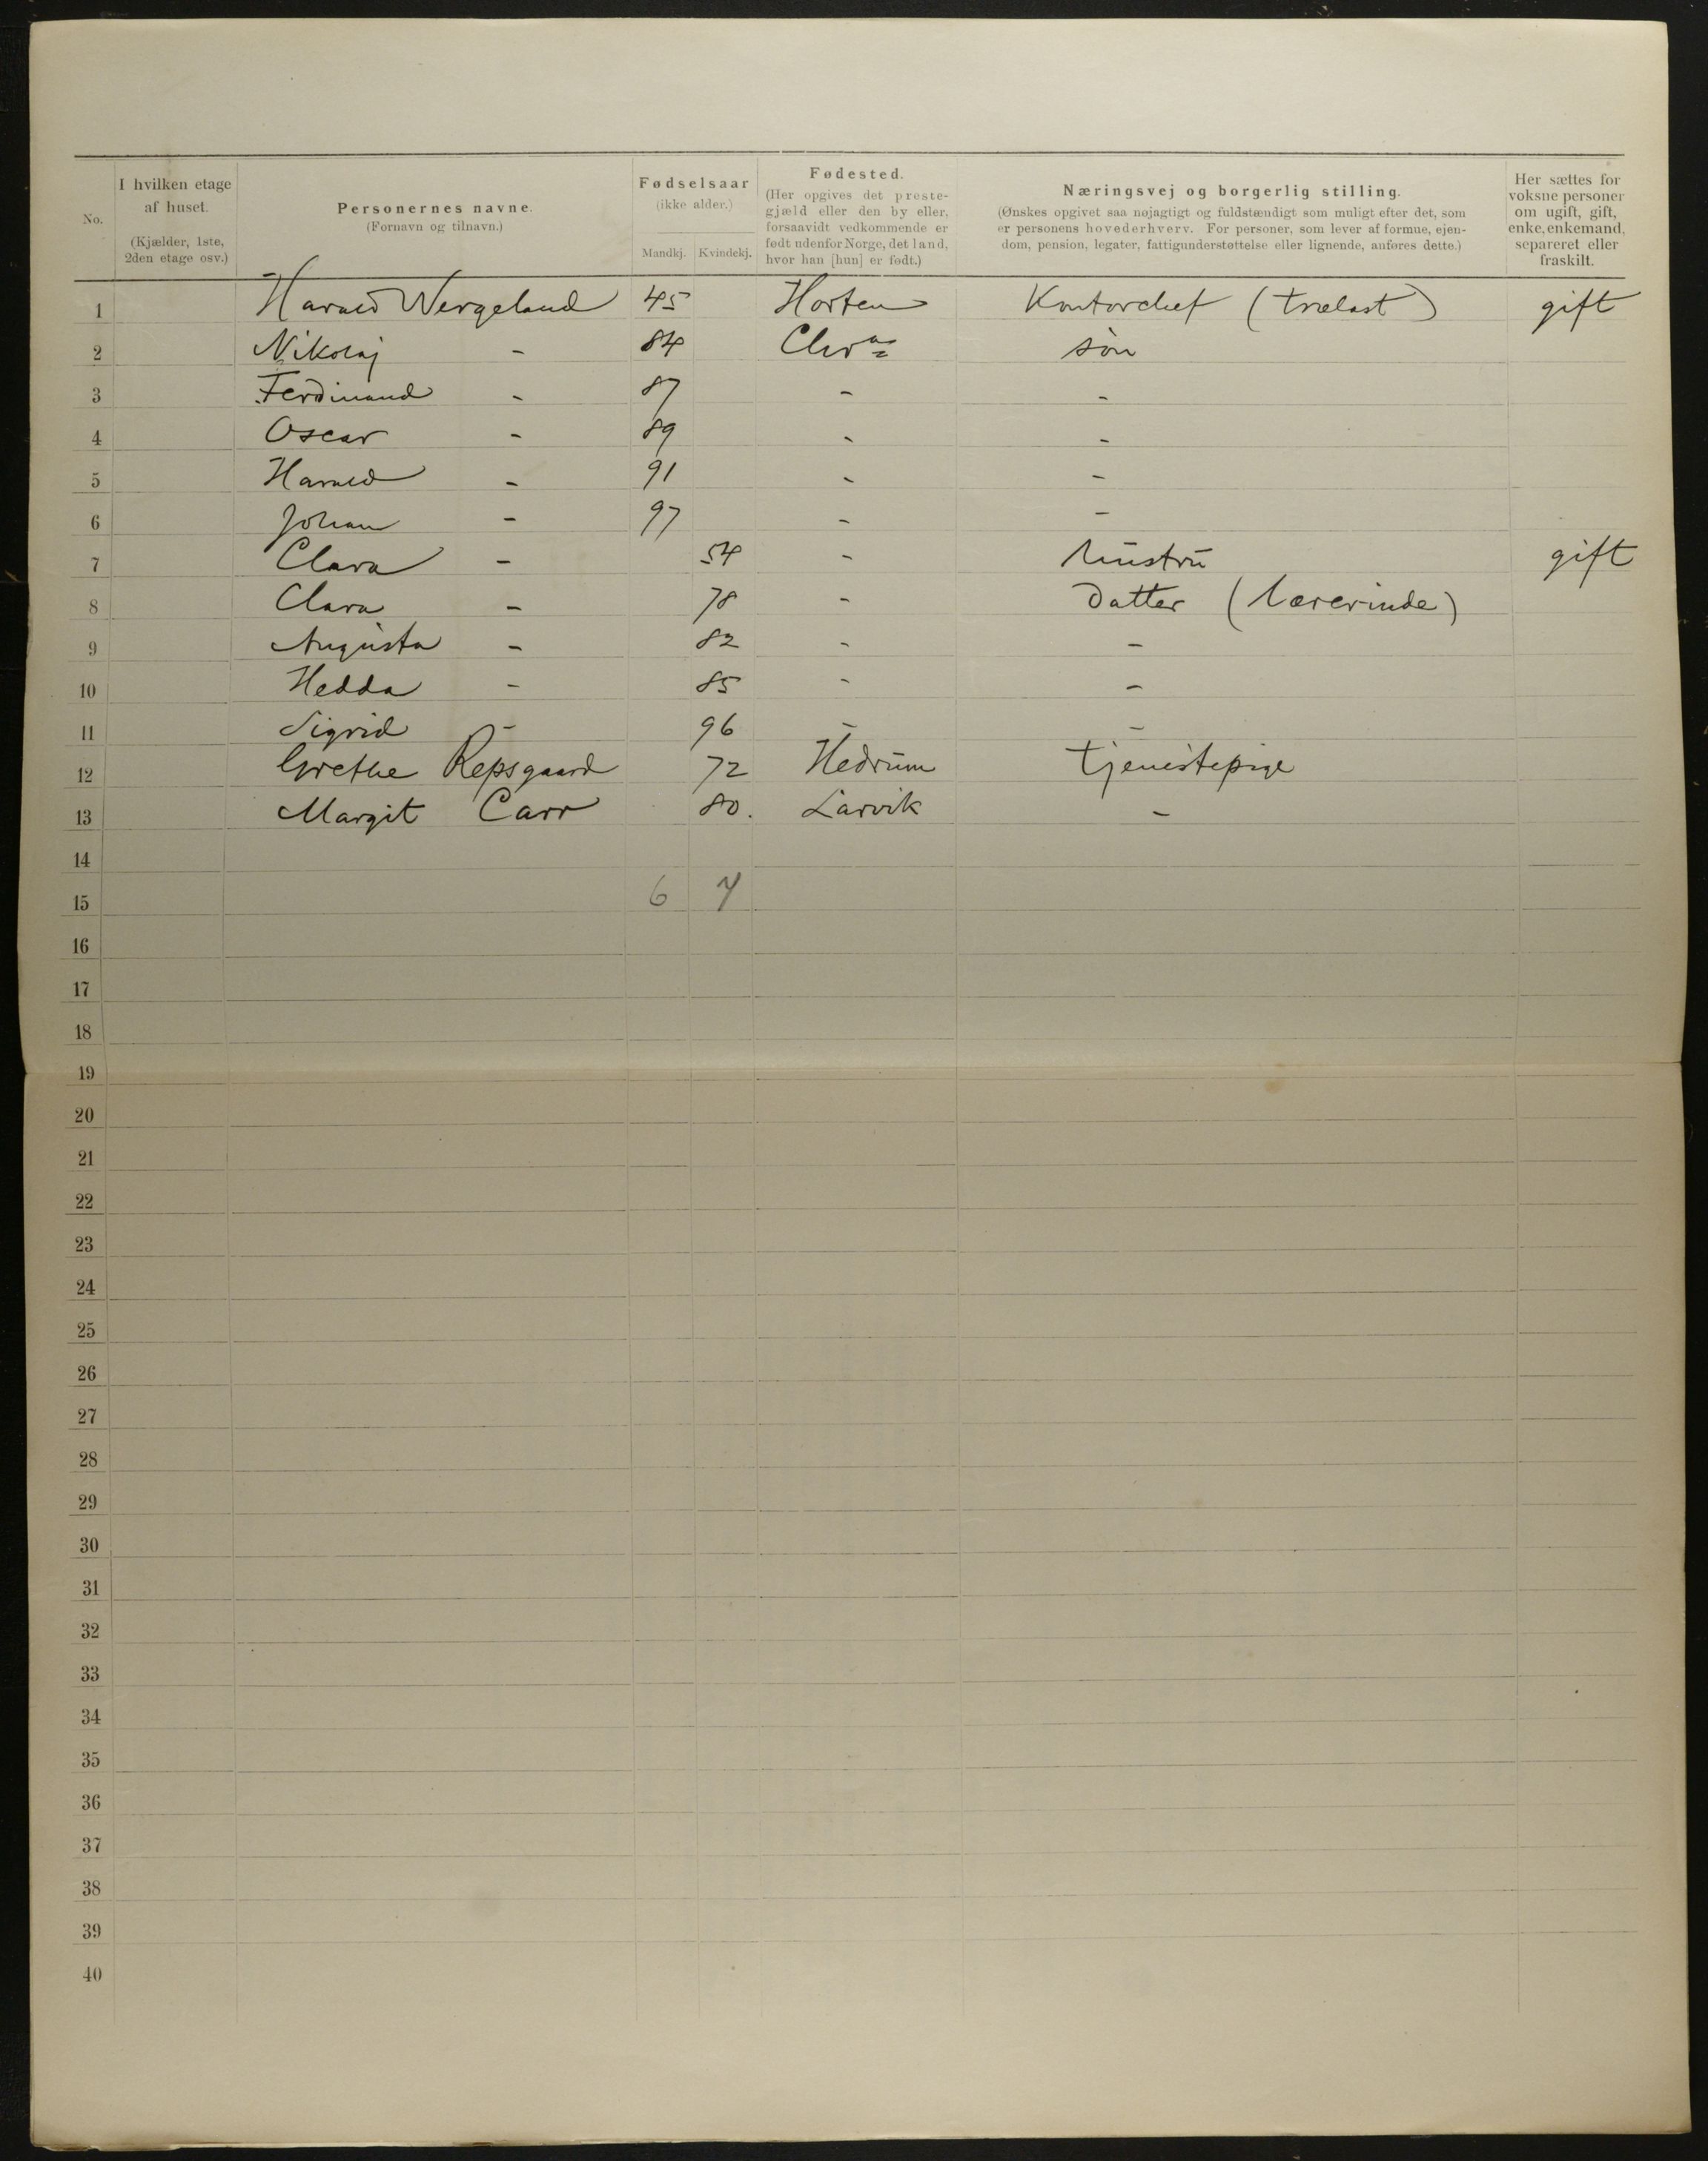 No.
I hvilken etage
af huset.
(Kjælder, 1ste,
2den etage osv.)
Personernes navne.
(Fornavn og tilnavn.)
Fødselsaar
(ikke alder.)
Mandkj. Kvindekj.
Fødested.
(Her opgives det preste-
gjæld eller den by eller,
forsaavidt vedkommende er
født udenfor Norge, det land,
hvor han [hun] er født.)
Næringsvej og borgerlig stilling.
(Ønskes opgivet saa nøjagtigt og fuldstændigt som muligt efter det, som
er personens hovederhverv. For personer, som lever af formue, ejen-
dom, pension, legater, fattigunderstøttelse eller lignende, anføres dette.)
Her sættes for
voksne personer
om ugift, gift,
enke, enkemand,
separeret eller
fraskilt.
1 Harald Wergeland 45 Horten Kontorchef (trælast) gift
2 Nikolaj - 84 Chra søn
3 Ferdinand - 87 - -
4 Oscar - 89 - -
5 Harald - 91 - -
6 Johan - 97 - -
7 Clara - 54 - hustru gift
8 Clara - 78 - Datter (lærerinde)
9 Augusta - 82 - -
10 Hedda - 85 - -
11 Sigrid - 96 - -
12 Grethe Repsgaard 72 Hedrum tjenestepige
13 Margit Carr 80. Larvik -
14
15 6 7
16
17
18
19
20
21
22
23
24
25
26
27
28
29
30
31
32
33
34
35
36
37
38
39
40